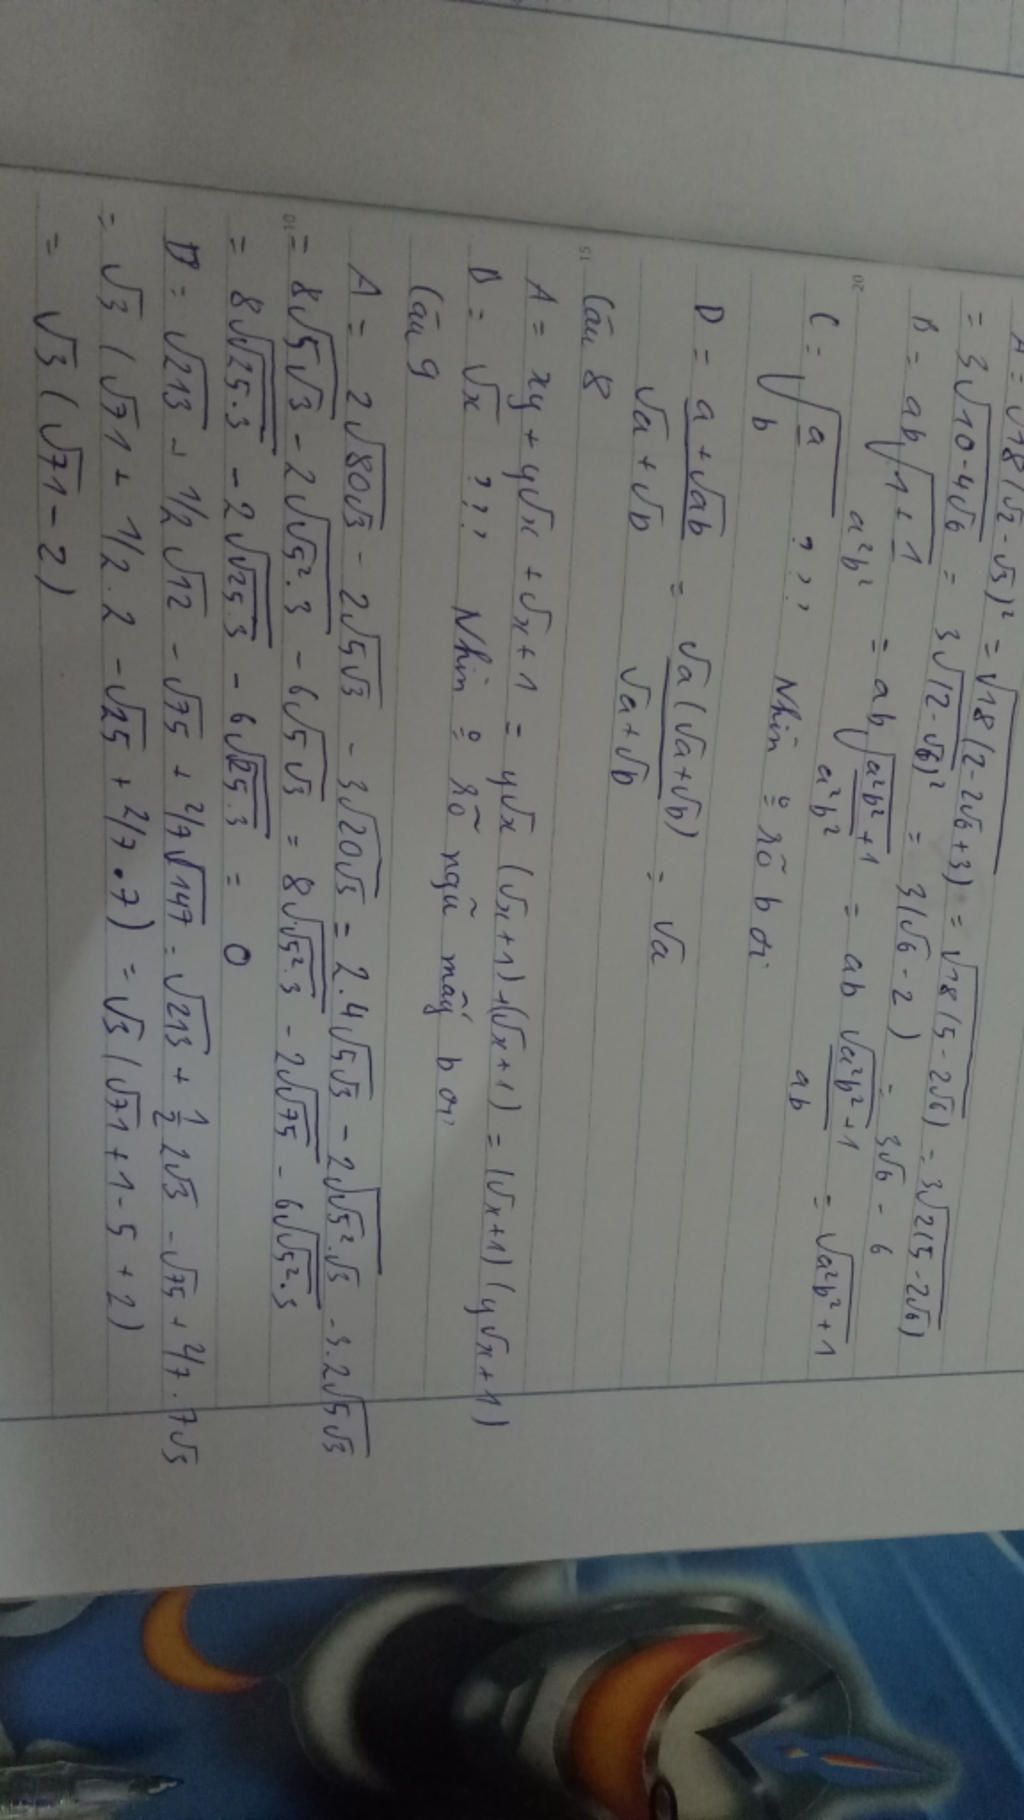 A = √18(√2 - √3)² = √18(2 - 2√6 + 3) = √18(5 - 2√6) = 3√2(5 - 2√6)
= 3√10 - 4√6 = 3√(2 - √6)² = 3(√6 - 2) = 3√6 - 6
B = ab√(1 + 1/a²b²) = ab√(a²b² + 1/a²b²) = ab √(a²b² + 1)/ab = √(a²b² + 1)
20
C = √(a/b) ??? Nhìn ๐ rõ b ơi
D = (a + √ab)/(√a + √b) = √a(√a + √b)/(√a + √b) = √a
15
Câu 8
A = xy + y√x + √x + 1 = y√x (√x + 1) + (√x + 1) = (√x + 1)(y√x + 1)
B = √x ??? Nhìn ๐ rõ ngũ mấy b ơi
Câu 9
A = 2√80√3 - 2√5√3 - 3√20√3 = 2.4√5√3 - 2√√5².√3 - 3.2√5√3
10
= 8√5√3 - 2√√5².3 - 6√5√3 = 8√√5².3 - 2√√75 - 6√√5².3
= 8√√25.3 - 2√√25.3 - 6√√25.3 = 0
B = √213 + 1/2 √12 - √75 + 2/7√147 = √213 + 1/2 2√3 - √75 + 2/7.7√3
= √3 (√71 + 1/2.2 - √25 + 2/7.7) = √3 (√71 + 1 - 5 + 2)
= √3 (√71 - 2)